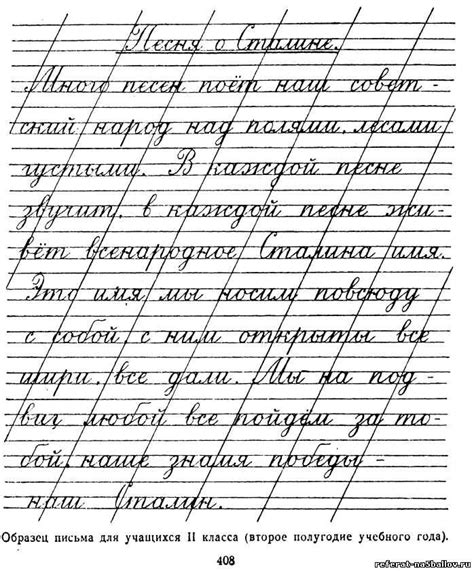 Песня о Сталине.
Много песен поёт наш совет-
ский народ над полями, лесами
густыми. В каждой песне
звучит, в каждой песне жи-
вёт всенародное Сталина имя.
Это имя мы носим повсюду
с собой, с ним открыты все
шири, все дали. Мы на под-
виг любой все пойдём за то-
бой, наше знамя победы -
наш Сталин.
Образец письма для учащихся II класса (второе полугодие учебного года).
408
referat-na5ballov.ru